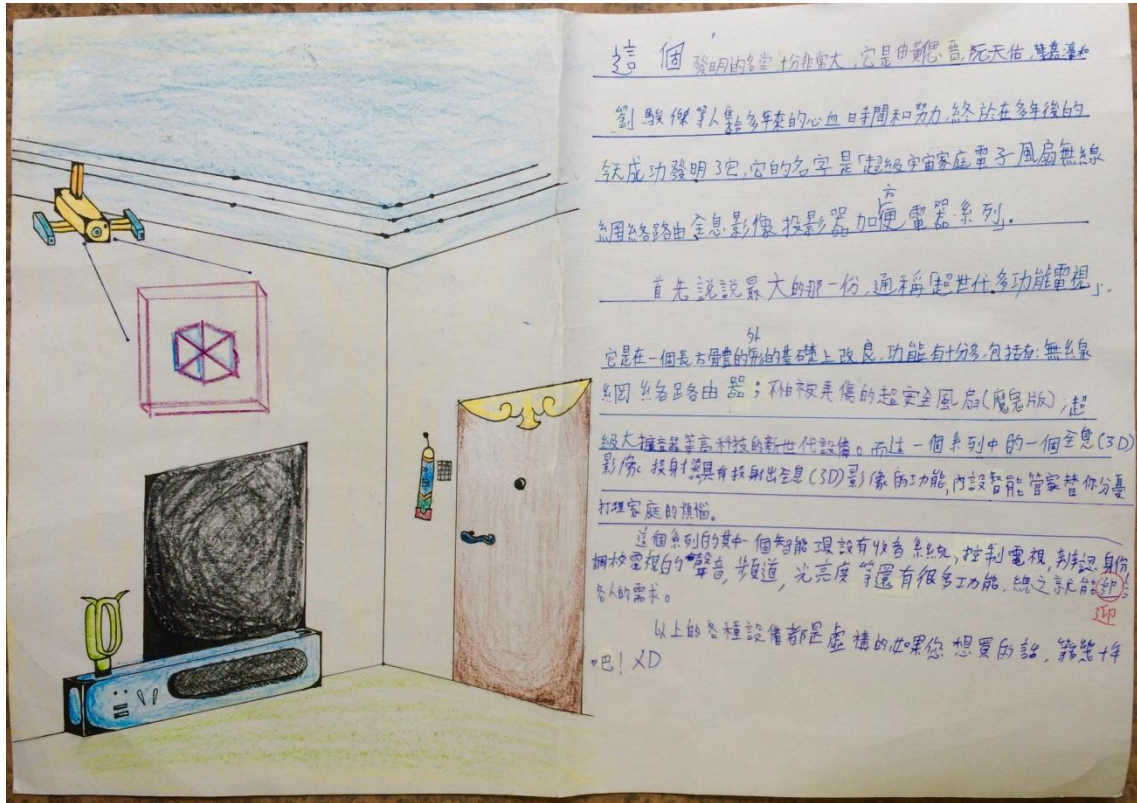 這個發明的名堂十分非常大,它是由黃思晉,阮天佑,
劉駿傑等人集結多年來的心血時間和努力,終於在多年後的
今天成功發明了它,它的名字是「超級宇宙家庭電子風扇無線
網絡路由全息影像投影器加方便電器系列」.
首先說說最大的那一份,通稱「超世代多功能電視」.
它是在一個長方體的外形的基礎上改良,功能有十分多,包括有:無線
網絡路由器;不怕被弄傷的超安全風扇(魔鬼版);超
級大擴音器等高科技的新世代設備。而這一個系列中的一個全息(3D)
影像投射器具有投射出全息(3D)影像的功能,內設智能管家替你分憂
打理家庭的煩惱。
這個系列的其中一個智能環設有收音系統,控制電視,辨認身份
調校電視的聲音,頻道,光亮度等還有很多功能.總之就能迎合
各人的需求。
迎
以上的各種設備都是虛構的如果您想買的話,等幾十年
吧!XD